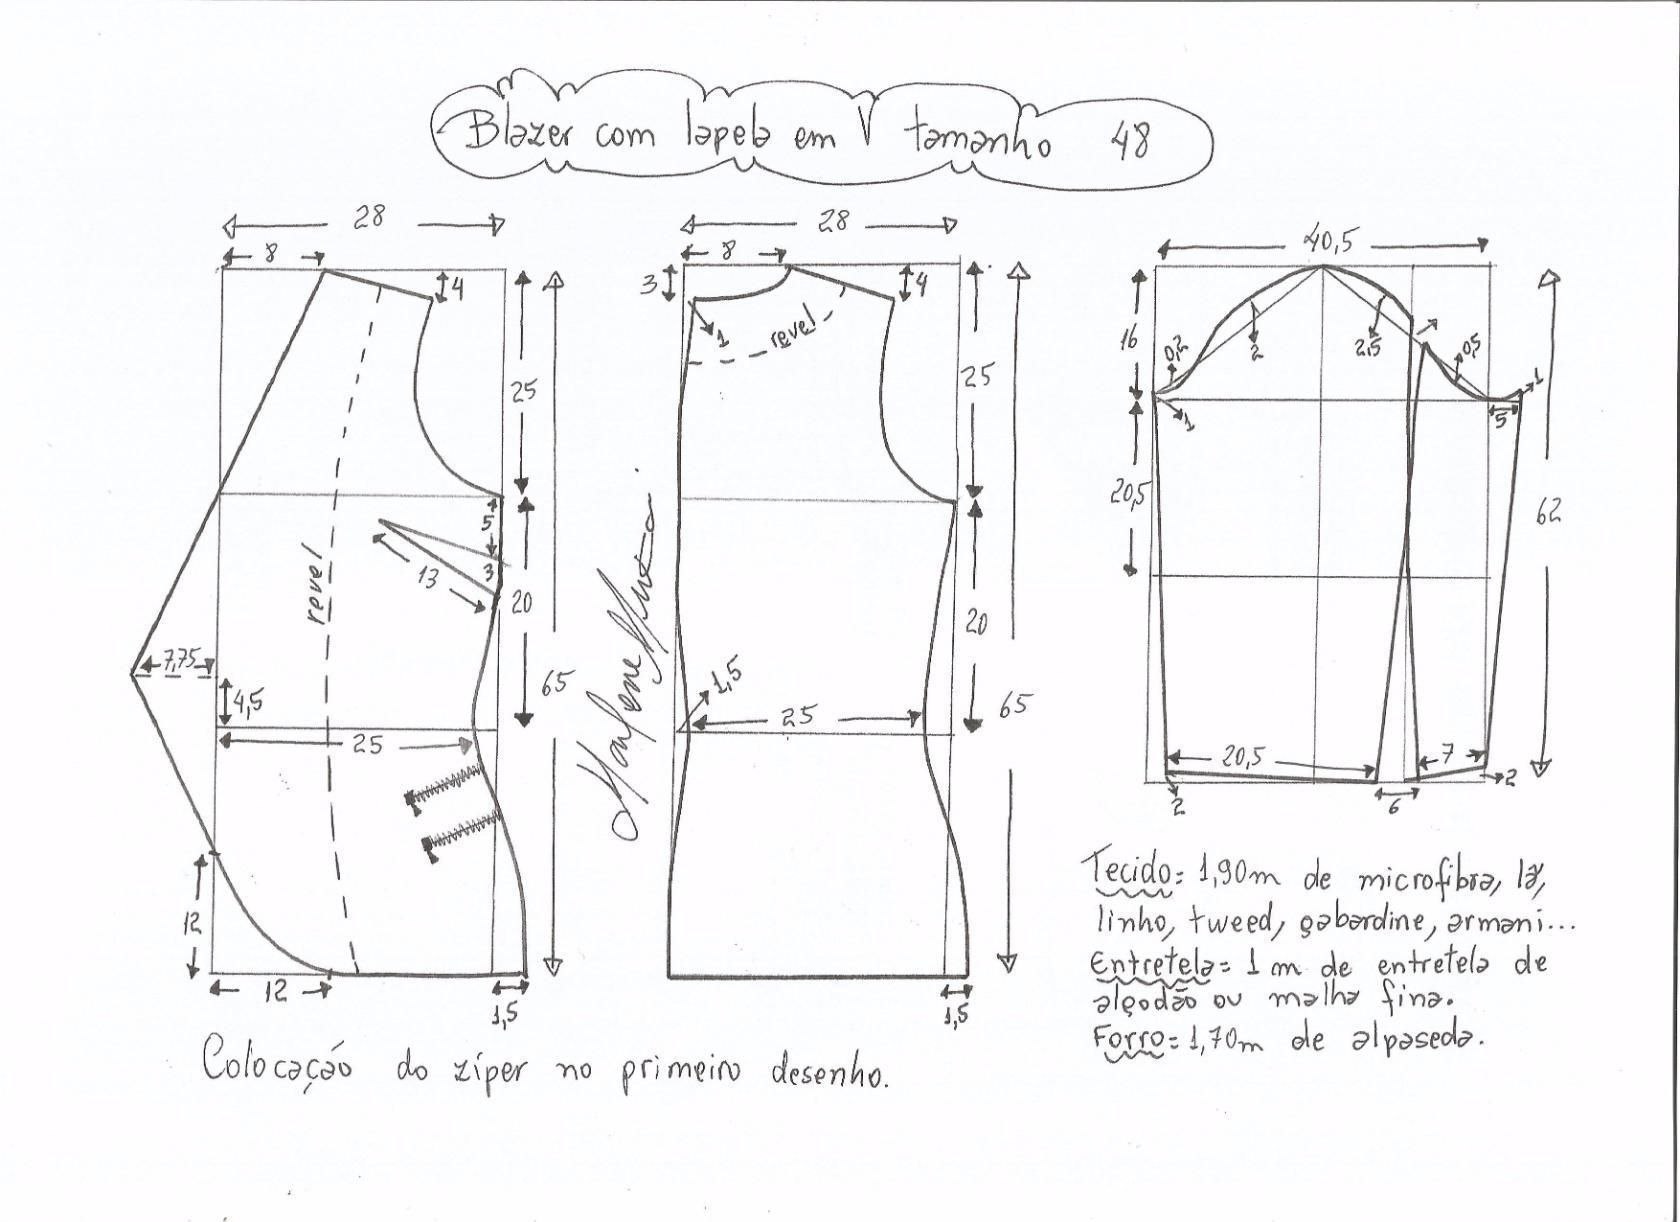 Blazer com lapela em V tamanho 48
28
8
4
25
5
3
13
20
revel
7,75
4,5
25
65
12
12
1,5
28
8
3
4
1
revel
25
20
1,5
25
65
1,5
Marlene Mukai
40,5
16
0,2
2
2,5
0,5
1
1
5
20,5
62
20,5
7
2
2
6
Tecido= 1,90m de microfibra, lã,
linho, tweed, gabardine, armani...
Entretela= 1 m de entretela de
algodão ou malha fina.
Forro= 1,70m de alpaseda.
Colocação do zíper no primeiro desenho.